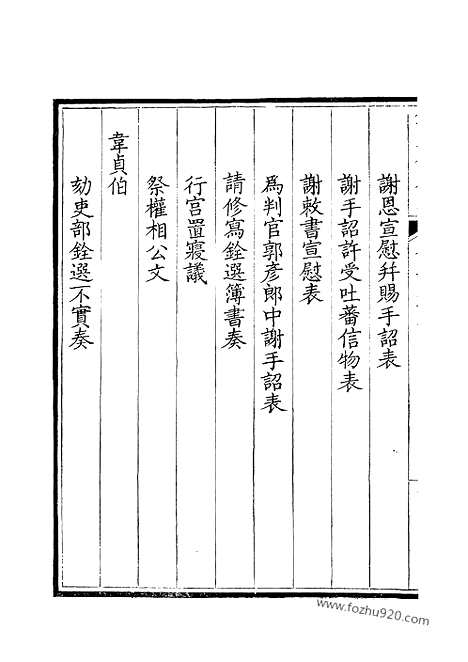 謝恩宣慰幷賜手詔表
謝手詔許受吐蕃信物表
謝敕書宣慰表
爲判官郭彥郎中謝手詔表
請修寫銓選簿書奏
行宮置寢議
祭權相公文
韋貞伯
劾吏部銓選不實奏
www.fozhu920.com